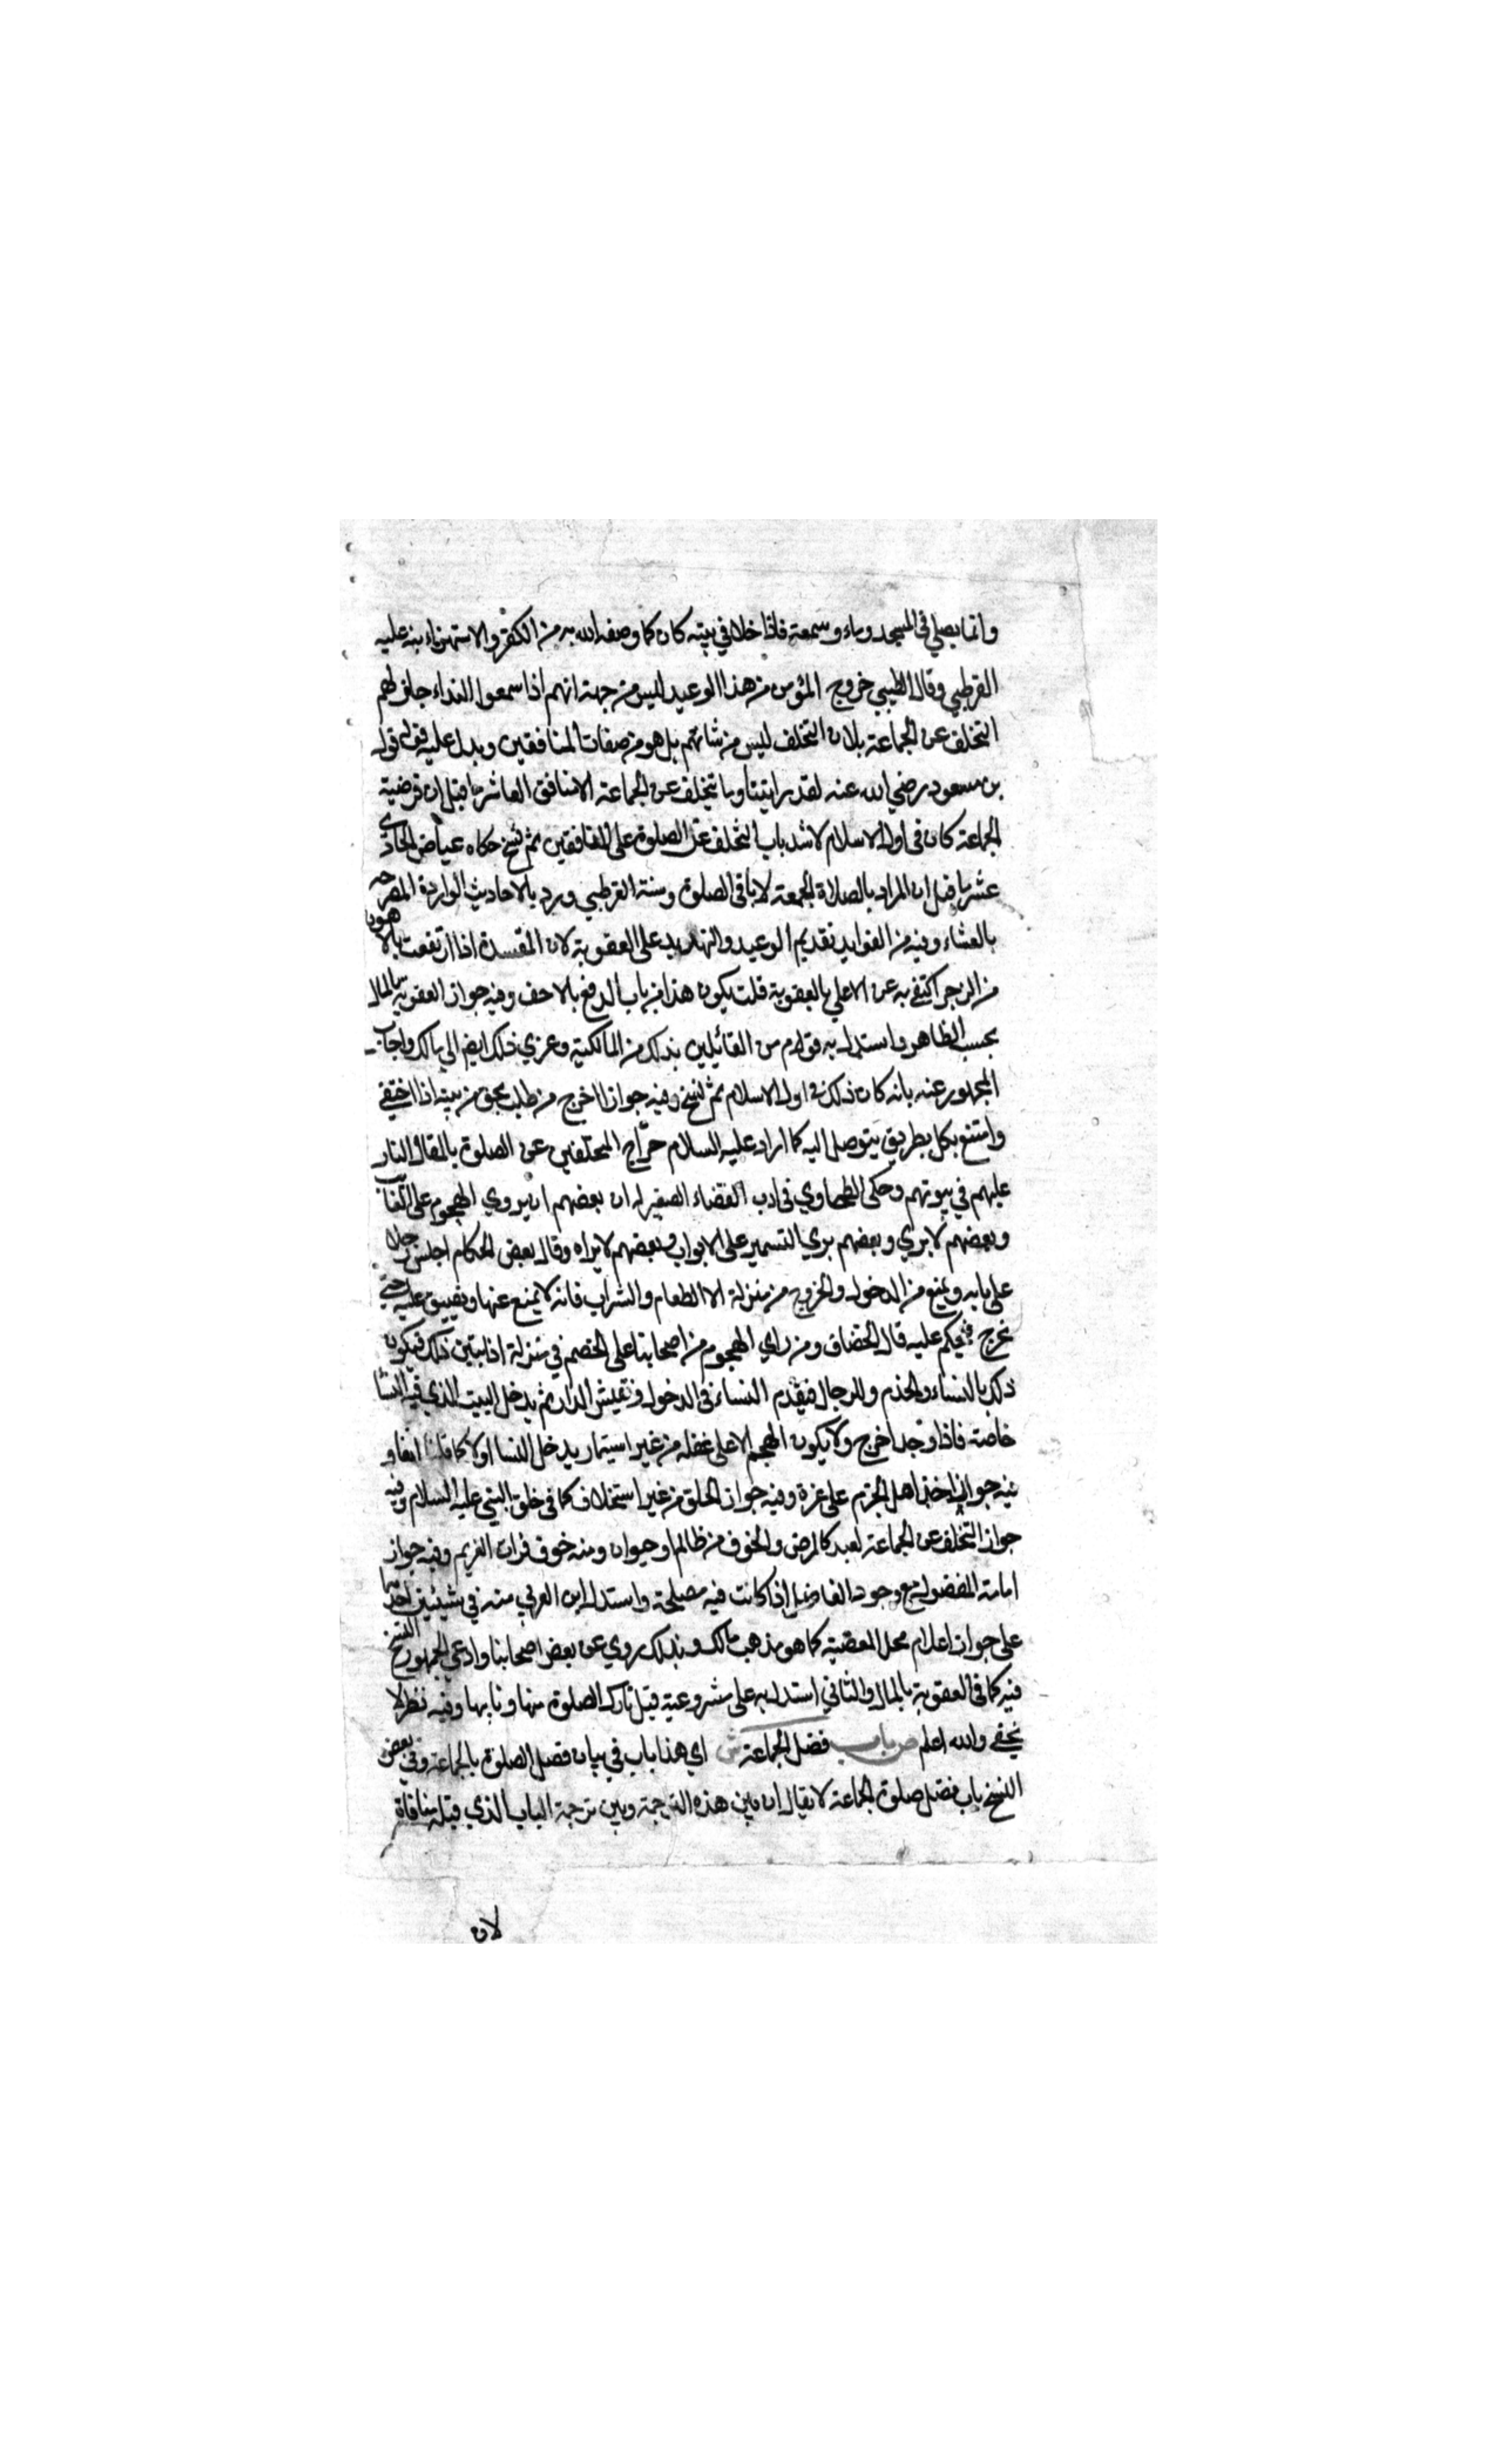 وانما يصلي في المسجد رياء وسمعة فاذا خلا في بيته كان كما وصفه الله به من الكفر والاستهزاء نبه عليه
القرطبي وقال الطيبي خروج المؤمن من هذا الوعيد ليس من جهة انهم اذا سمعوا النداء جاز لهم
التخلف عن الجماعة بل ان التخلف ليس من شانهم بل هو من صفات المنافقين ويدل عليه قول
بن مسعود رضي الله عنه لقد رايتنا وما يتخلف عن الجماعة الا منافق العاشر ما قيل ان فرضية
الجماعة كان في اول الاسلام لاشد باب التخلف عن الصلوة على المنافقين ثم نسخ حكاه عياض الحادي
عشر ما قيل ان المراد بالصلاة الجمعة لا باقي الصلوة القرطبي ورد بالاحاديث الواردة المصرحة
بالعشاء وفيه من الفوايد تقديم الوعيد والتهديد على العقوبة لان المفسدة اذا ارتفعت بالاهون
من الزجر اكتفي به عن الاعلي بالعقوبة قلت يكون هذا من باب الدفع بالاخف وفيه جواز العقوبة بالمال
بحسب الظاهر واستدل به قوم من القائلين بذلك من المالكية وعزي ذلك ايضا الي مالك واجاب
الجمهور عنه بانه كان ذلك في اول الاسلام ثم نسخ وفيه جواز اخرج من طلب بحق من بيته اذا اختفي
وامتنع بكل طريق يتوصل اليه كما اراد عليه السلام المتخلفين عن الصلوة بالقاء النار
عليهم في بيوتهم وحكى الطحاوي في ادب القضاء الصغير له ان بعضهم يروي الهجوم على الغائب
وبعضهم لا يري وبعضهم يري التسمير على الابواب وبعضهم لا يراه وقال بعض الحكام اجلس رجال
على بابه ويمنع من الدخول والخروج من منزله الا الطعام والشراب فانه لا يمنع عنها ويضيق عليه حتي
يخرج فيحكم عليه قال الخصاف ومن راي الهجوم من اصحابنا على الخصم في منزله اذا تبين ذلك فيكون
ذلك بالنساء والخدم والرجال فيقدم النساء في الدخول وتفتيش الدار ثم يدخل البيت الذي فيه النسا
خاصة فاذا وجد اخرج ولا يكون الهجم الا على غفلة من غير استيمار يدخل النسا اولا كما قلنا انفا و
فيه جواز اخذ اهل الجرم على غرة وفيه جواز الحلق من غير استخلاف كما في خلق النبي عليه السلام وفيه
جواز التخلف عن الجماعة لعبد كالمرض والخوف من ظالم او حيوان ومنه خوف فوات الغريم وفيه جواز
امامة المفضول مع وجود الفاضل اذا كانت فيه مصلحة واستدل ابن العربي منه في شيئين احدهما
على جواز اعلام محل المعصية كما هو مذهب مالك وبذلك روي عن بعض اصحابنا وادعي الجمهور النسخ
فيه كما في العقوبة بالمال والثاني استدل به على مشروعية قتل تارك الصلوة متهاونا بها وفيه نظر لا
يخفي والله اعلم ص باب فضل الجماعة ش اي هذا باب في بيان فضل الصلوة بالجماعة وفي بعض
النسخ باب فضل صلوة الجماعة لا يقال ان بين هذه الترجمة وبين ترجمة الباب الذي قبله منافاة
لان